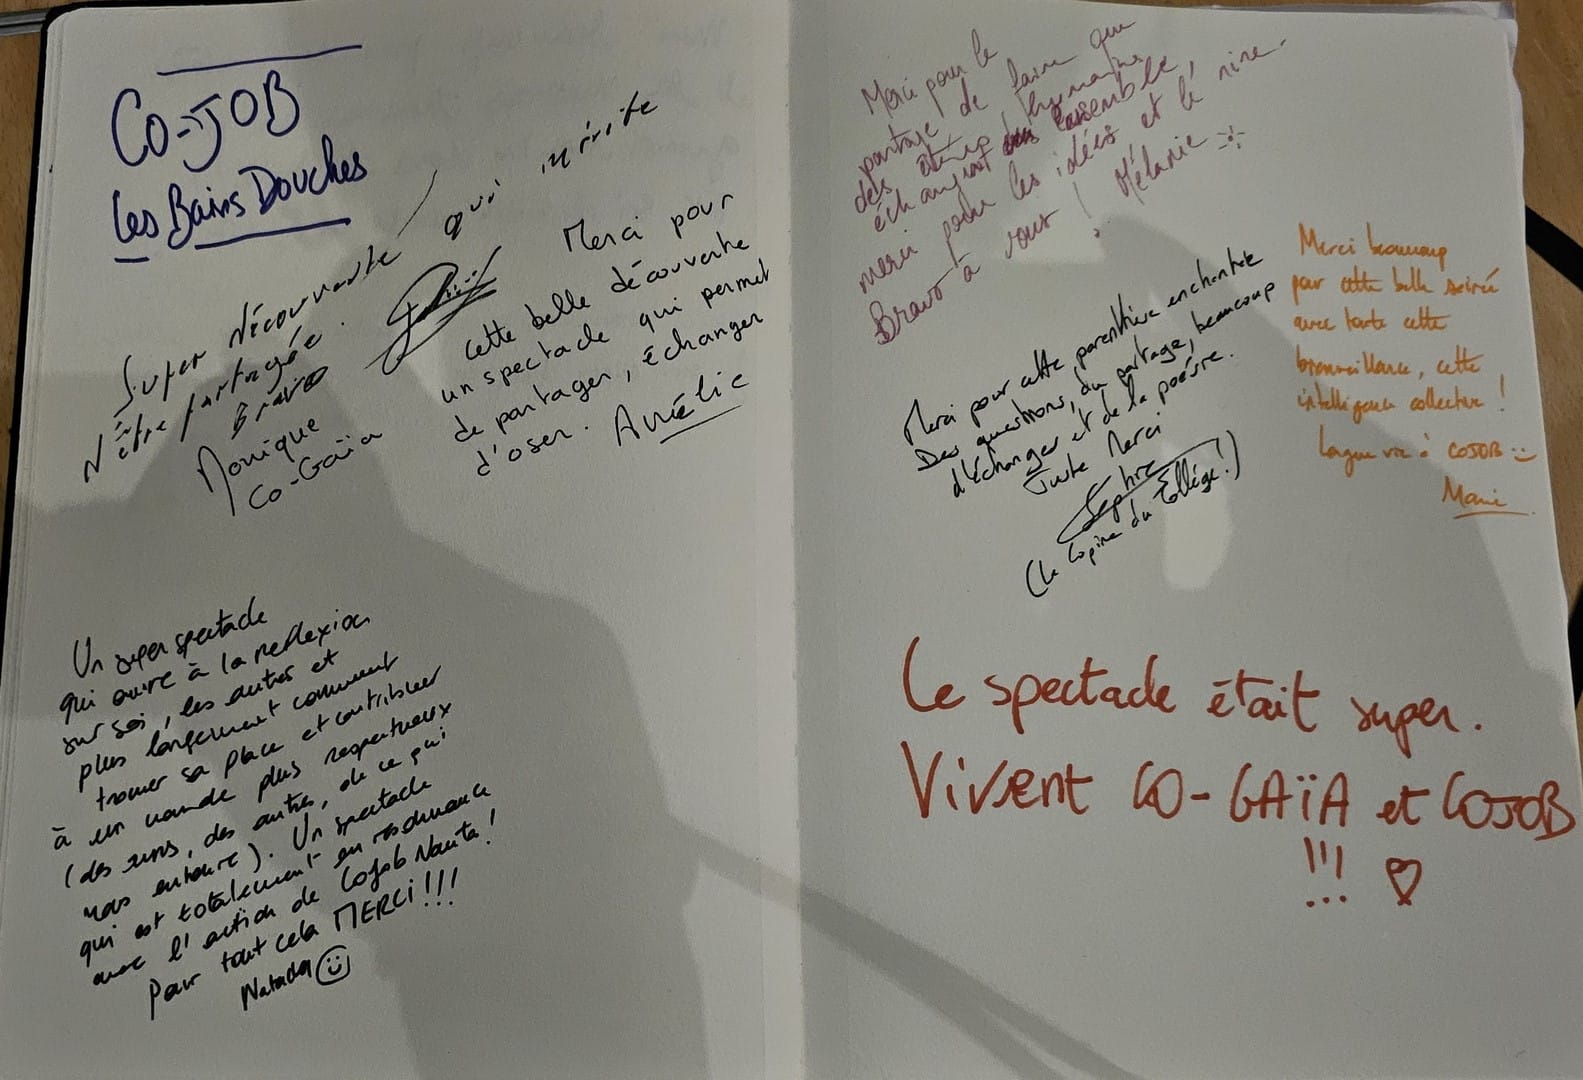 CO-JOB
Les Bains Douches
Super découverte qui mérite
d'être partagée.
Bravo
Monique
Co-Gaïa
Merci pour
cette belle découverte
un spectacle qui permet
de partager, échanger
d'oser. Amélie
Un super spectacle
qui ouvre à la reflexion
sur soi, les autres et
plus largement comment
trouver sa place et contribuer
à un monde plus respectueux
(des uns, des autres, de ce qui
nous entoure). Un spectacle
qui est totalement en résonnance
avec l'action de Cojob Nanta!
Pour tout cela MERCI!!!
Merci pour le
partage, de faire que
des êtres humains
échangent ensemble,
merci pour les idées et le rire.
Bravo à vous ! Mélanie
Merci pour cette parenthèse enchantée
Des questions, du partage, beaucoup
d'échanger et de la poésie.
Juste Merci
(la copine du Collège!)
Merci beaucoup
pour cette belle soirée
avec toute cette
bienveillance, cette
intelligence collective !
Longue vie à COJOB
Marie
Le spectacle était super.
Vivent CO-GAÏA et COJOB
!!!